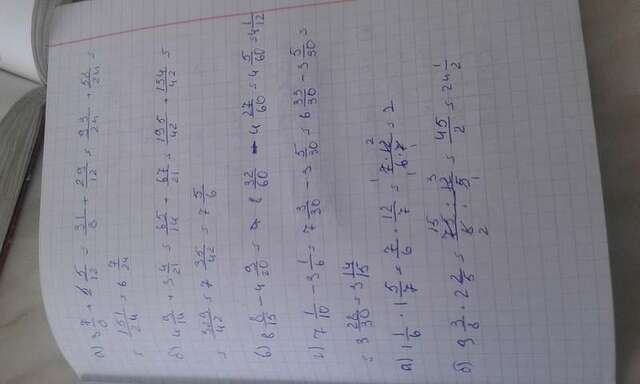 а) 3 7/8 + 2 5/12 = 31/8 + 29/12 = 93/24 + 58/24 =
= 151/24 = 6 7/24
б) 4 9/14 + 3 4/21 = 65/14 + 67/21 = 195/42 + 134/42 =
= 329/42 = 7 35/42 = 7 5/6
в) 8 8/15 - 4 9/20 = 8 32/60 - 4 27/60 = 4 5/60 = 4 1/12
г) 7 1/10 - 3 1/6 = 7 3/30 - 3 5/30 = 6 33/30 - 3 5/30 =
= 3 28/30 = 3 14/15
а) 1 1/6 · 1 5/7 = 7/6 · 12/7 = 7·12/6·7 = 2
б) 9 3/8 · 2 2/5 = 75·12/8·5 = 45/2 = 24 1/2